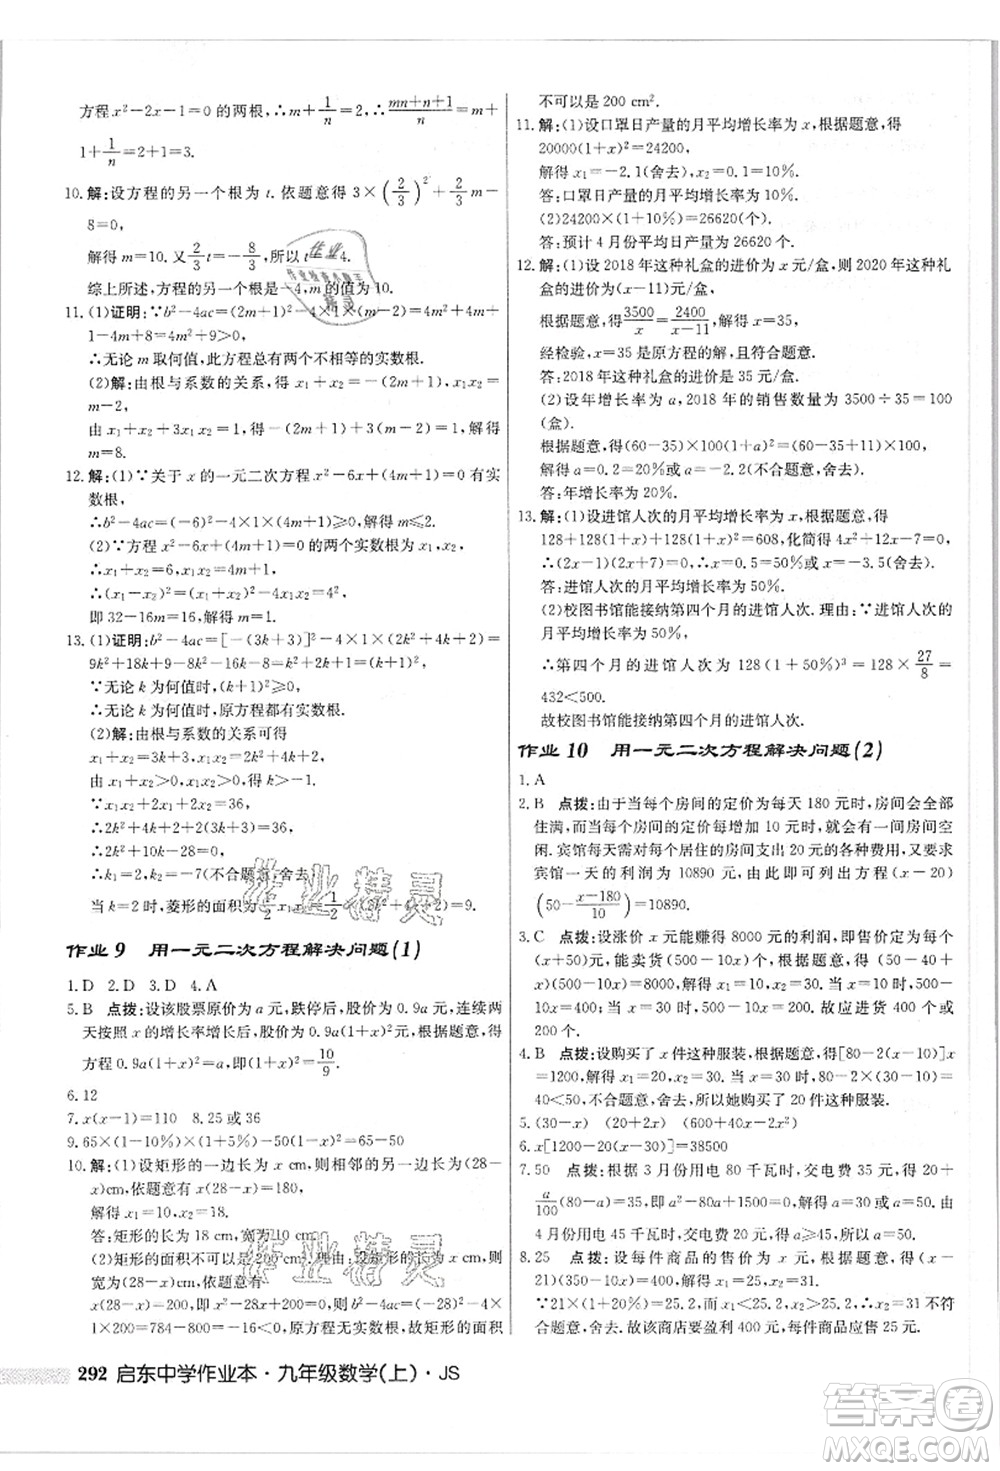 方程x²-2x-1=0的两根,∴m+1/n=2,∴(mn+n+1)/n=m+
1+1/n=2+1=3.
10.解:设方程的另一个根为t.依题意得3×(2/3)²+2/3m-
8=0,
解得m=10.又2/3t=-8/3,所以t=-4.
综上所述,方程的另一个根是-4,m的值为10.
11.(1)证明:∵b²-4ac=(2m+1)²-4×1×(m-2)=4m²+9>0,
∴无论m取何值,此方程总有两个不相等的实数根.
(2)解:由根与系数的关系,得x₁+x₂=-(2m+1),x₁x₂=
m-2,
由x₁+x₂+3x₁x₂=1,得-(2m+1)+3(m-2)=1,解得
m=8.
12.解:(1)∵关于x的一元二次方程x²-6x+(4m+1)=0有实
数根,
∴b²-4ac=(-6)²-4×1×(4m+1)≥0,解得m≤2.
(2)∵方程x²-6x+(4m+1)=0的两个实数根为x₁,x₂,
∴x₁+x₂=6,x₁x₂=4m+1,
∴(x₁-x₂)²=(x₁+x₂)²-4x₁x₂=4²,
即32-16m=16,解得m=1.
13.(1)证明:b²-4ac=[-(3k+3)]²-4×1×(2k²+4k+2)=
9k²+18k+9-8k²-16k-8=k²+2k+1=(k+1)².
∵无论k为何值时,(k+1)²≥0,
∴无论k为何值时,原方程都有实数根.
(2)解:由根与系数的关系可得
x₁+x₂=3k+3,x₁x₂=2k²+4k+2,
∴x₁x₂+2x₁+2x₂=x₁x₂+2(x₁+x₂)=36,
∴2k²+4k+2+6k+6=36,
∴k₁=-7(不合题意,舍去),k₂=2,
当k=2时,菱形的面积为1/2x₁x₂=1/2(2k²+4k+2)=9.
作业9 用一元二次方程解决问题(1)
1.D 2.D 3.D 4.A
5.B 点拨:设该股票原价为a元,跌停后,股价为0.9a元,连续两
天按照x的增长率增长后,股价为0.9a(1+x)²元,根据题意,得
方程0.9a(1+x)²=a,即(1+x)²=10/9.
6.12
7.x(x-1)=110 8.25或36
9.65×(1-10%)×(1+5%)-50(1-x)²=65-50
10.解:(1)设矩形的一边长为x cm,则邻边的长度为(28-
x)cm,依题意有x(28-x)=180,
解得x₁=10,x₂=18.
答:矩形的长为18 cm,宽为10 cm.
(2)矩形的面积不可以是200 cm².理由:设矩形的长为x cm,则
宽为(28-x)cm,依题意有
x(28-x)=200,即x²-28x+200=0,∵b²-4ac=(-28)²-4×
1×200=784-800=-16<0,原方程无解,故矩形的面积
不可以是200 cm².
11.解:(1)设口罩日产量的月平均增长率为x,根据题意,得
20000(1+x)²=24200,
解得x₁=-2.1(舍去),x₂=0.1=10%.
答:口罩日产量的月平均增长率为10%.
(2)24200×(1+10%)=26620(个).
答:预计4月份平均日产量为26620个.
12.解:(1)设2018年这种礼盒的进价为x元/盒,则2020年这种礼
盒的进价为(x-11)元/盒,
根据题意,得3500/x=2400/(x-11),解得x=35,
经检验,x=35是原方程的解,且符合题意.
答:2018年这种礼盒的进价是35元/盒.
(2)设年增长率为a,2018年的销售数量为3500÷35=100
(盒).
根据题意,得(60-35)×100(1+a)²=(60-35+11)×100,
解得a=0.2=20%或a=-2.2(不合题意,舍去).
答:年增长率为20%.
13.解:(1)设进馆人次的月平均增长率为x,根据题意,得
128+128(1+x)+128(1+x)²=608,化简得4x²+12x-7=0,
∴(2x-1)(2x+7)=0,∴x=0.5=50%或x=-3.5(舍去).
答:进馆人次的月平均增长率为50%.
(2)校图书馆能接纳第四个月的进馆人次.理由:∵进馆人次
的月平均增长率为50%,
∴第四个月的进馆人次为128(1+50%)³=128×27/8=
432<500.
故校图书馆能接纳第四个月的进馆人次.
作业10 用一元二次方程解决问题(2)
1.A
2.B 点拨:由于当每个房间的定价为每天180元时,房间会全部
住满,而当每个房间的定价每增加10元时,就会有一个房间空
闲.宾馆每天需对每个居住的房间支出20元的各种费用,又该
宾馆一天的利润为10890元,由此可列出方程(x-20)
(50-(x-180)/10)=10890.
3.C 点拨:设涨价x元能赚得8000元的利润,即售价为(50+x)
元,销量为(500-10x)个,由题意,得(50+x-40)(500-
10x)=8000,解得x₁=10,x₂=30.当x=10时,应进货500-
10x=400;当x=30时,应进货500-10x=200.故应进货400个或
200个.
4.B 点拨:设购买了x件这种服装,根据题意,得[80-2(x-
10)]x=1200,解得x₁=20,x₂=30.当x=30时,80-2(30-10)=
40<50,不合题意,舍去,所以她购买了20件这种服装.
5.(30-x) (20+x) (600+40x-2x²)
6.x[1200-20(x-30)]=38500
7.50 点拨:根据3月份用电80千瓦时,交电费35元,得20+
a/100(80-a)=35,即a²-80a+1500=0,解得a=30或a=50.由
4月份用电45千瓦时,交电费20元,得a≥45,∴a=50.
8.25 点拨:设每件商品的售价为x元,根据题意,得(x-
21)(350-10x)=400,解得x₁=25,x₂=31.
∵21×(1+20%)=25.2,而x₁<25.2,x₂>25.2,∴x=31不符
合题意,舍去.故该商店要盈利400元,每件商品应售价25元.
292 启东中学作业本·九年级数学(上)·JS
作业精灵
作业精灵
答案圈
MXQE.COM